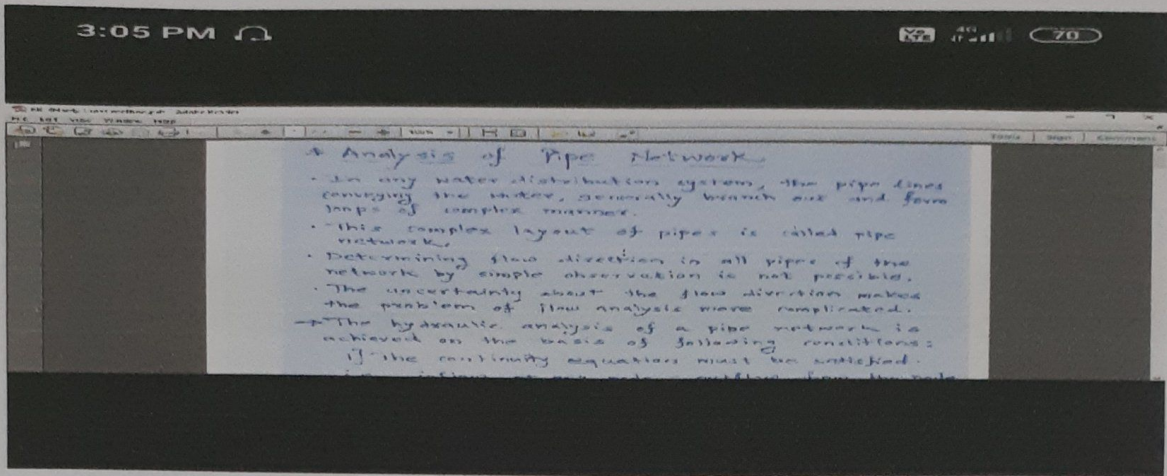 3:05 PM
Vo LTE 4G 70
* Analysis of Pipe Network
· In any water distribution system, the pipe lines
conveying the water, generally branch out and form
loops of complex manner.
· This complex layout of pipes is called pipe
network.
· Determining flow direction in all pipes of the
network by simple observation is not possible.
· The uncertainty about the flow direction makes
the problem of flow analysis more complicated.
→ The hydraulic analysis of a pipe network is
achieved on the basis of following conditions:
1] The continuity equation must be satisfied.